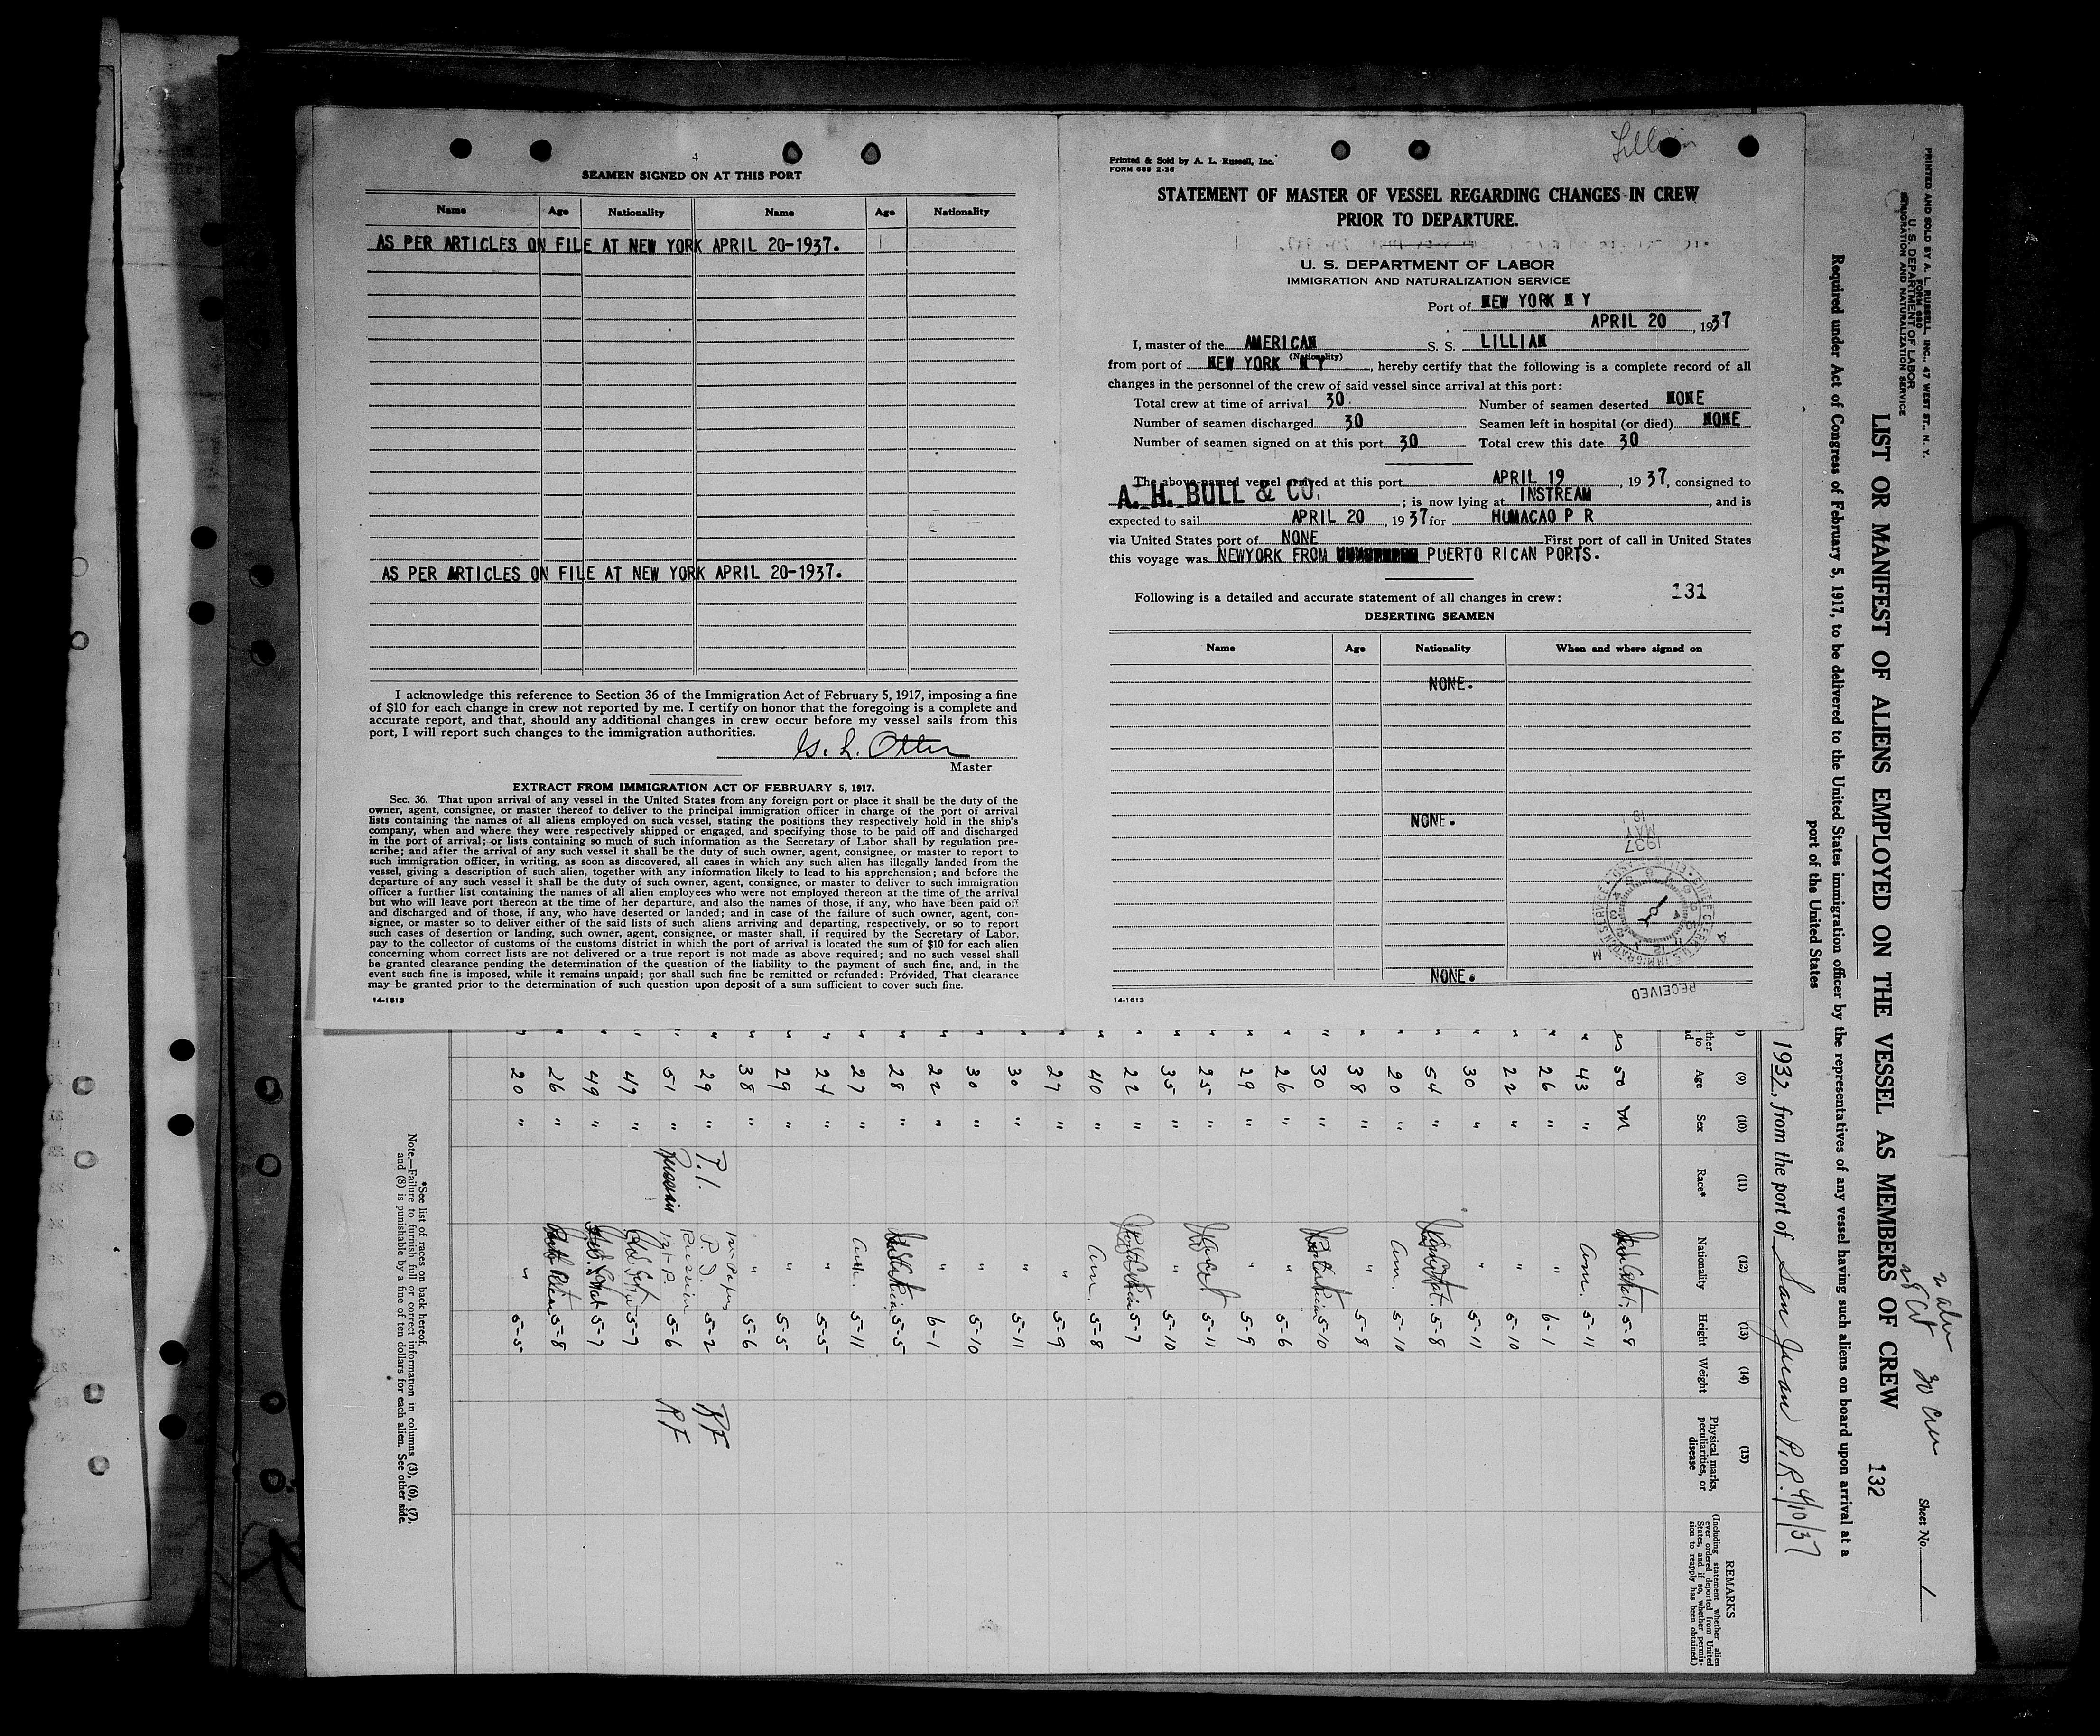 4
SEAMEN SIGNED ON AT THIS PORT
Name Age Nationality Name Age Nationality
AS PER ARTICLES ON FILE AT NEW YORK APRIL 20-1937.
AS PER ARTICLES ON FILE AT NEW YORK APRIL 20-1937.
I acknowledge this reference to Section 36 of the Immigration Act of February 5, 1917, imposing a fine
of $10 for each change in crew not reported by me. I certify on honor that the foregoing is a complete and
accurate report, and that, should any additional changes in crew occur before my vessel sails from this
port, I will report such changes to the immigration authorities.
Master
EXTRACT FROM IMMIGRATION ACT OF FEBRUARY 5, 1917.
Sec. 36. That upon arrival of any vessel in the United States from any foreign port or place it shall be the duty of the
owner, agent, consignee, or master thereof to deliver to the principal immigration officer in charge of the port of arrival
lists containing the names of all aliens employed on such vessel, stating the positions they respectively hold in the ship's
company, when and where they were respectively shipped or engaged, and specifying those to be paid off and discharged
in the port of arrival; or lists containing so much of such information as the Secretary of Labor shall by regulation pre-
scribe; and after the arrival of any such vessel it shall be the duty of such owner, agent, consignee, or master to report to
such immigration officer, in writing, as soon as discovered, all cases in which any such alien has illegally landed from the
vessel, giving a description of such alien, together with any information likely to lead to his apprehension; and before the
departure of any such vessel it shall be the duty of such owner, agent, consignee, or master to deliver to such immigration
officer a further list containing the names of all alien employees who were not employed thereon at the time of the arrival
but who will leave port thereon at the time of her departure, and also the names of those, if any, who have been paid off
and discharged and of those, if any, who have deserted or landed; and in case of the failure of such owner, agent, con-
signee, or master so to deliver either of the said lists of such aliens arriving and departing, respectively, or so to report
such cases of desertion or landing, such owner, agent, consignee, or master shall, if required by the Secretary of Labor,
pay to the collector of customs of the customs district in which the port of arrival is located the sum of $10 for each alien
concerning whom correct lists are not delivered or a true report is not made as above required; and no such vessel shall
be granted clearance pending the determination of the question of the liability to the payment of such fine, and, in the
event such fine is imposed, while it remains unpaid; nor shall such fine be remitted or refunded: Provided, That clearance
may be granted prior to the determination of such question upon deposit of a sum sufficient to cover such fine.
14-1613
Lillian
Printed & Sold by A. L. Russell, Inc.
FORM 689 2-36
STATEMENT OF MASTER OF VESSEL REGARDING CHANGES IN CREW
PRIOR TO DEPARTURE.
U. S. DEPARTMENT OF LABOR
IMMIGRATION AND NATURALIZATION SERVICE
Port of NEW YORK N Y
APRIL 20, 1937
I, master of the AMERICAN S. S. LILLIAN
(Nationality)
from port of NEW YORK N Y, hereby certify that the following is a complete record of all
changes in the personnel of the crew of said vessel since arrival at this port:
Total crew at time of arrival 30. Number of seamen deserted NONE
Number of seamen discharged 30 Seamen left in hospital (or died) NONE
Number of seamen signed on at this port 30 Total crew this date 30
The above-named vessel arrived at this port APRIL 19, 1937, consigned to
A. H. BULL & CO. ; is now lying at INSTREAM, and is
expected to sail APRIL 20, 1937 for HUMACAO P R
via United States port of NONE First port of call in United States
this voyage was NEWYORK FROM PUERTO RICAN PORTS.
Following is a detailed and accurate statement of all changes in crew: 131
DESERTING SEAMEN
Name Age Nationality When and where signed on
NONE.
NONE.
NONE.
14-1613
1937
MAY
RECEIVED
PRINTED AND SOLD BY A. L. RUSSELL, INC., 47 WEST ST., N. Y.
FORM 680
U. S. DEPARTMENT OF LABOR
IMMIGRATION AND NATURALIZATION SERVICE
30 Crew
Sheet No. 1
LIST OR MANIFEST OF ALIENS EMPLOYED ON THE VESSEL AS MEMBERS OF CREW 132
Required under Act of Congress of February 5, 1917, to be delivered to the United States immigration officer by the representatives of any vessel having such aliens on board upon arrival at a
port of the United States
1937, from the port of San Juan P.R. 4/10/37
(9) (10) (11) (12) (13) (14) (15)
Age Sex Race* Nationality Height Weight Physical marks, peculiarities, or disease REMARKS
(Including statement whether alien
ever ordered deported from United
States, and if so, whether permis-
sion to reapply has been obtained.)
50 M 5-9
43 " Am. 5-11
26 " " 6-1
22 " " 5-10
30 " " 5-11
54 " 5-8
20 " Am. 5-10
38 " " 5-8
30 " 5-10
26 " " 5-6
29 " " 5-9
25 " 5-11
35 " " 5-10
22 " 5-7
40 " Am. 5-8
27 " " 5-9
30 " " 5-11
30 " " 5-10
22 " " 6-1
28 " 5-5
27 " Am. 5-11
24 " " 5-5
29 " " 5-5
38 " " 5-6
29 " P.I. P.I. 5-2 RF
51 " Russian Russian 5-6 RF
47 " 5-7
49 " 5-7
26 " 5-8
20 " " 5-5
*See list of races on back hereof.
Note.—Failure to furnish full or correct information in columns (3), (6), (7),
and (8) is punishable by a fine of ten dollars for each alien. See other side.